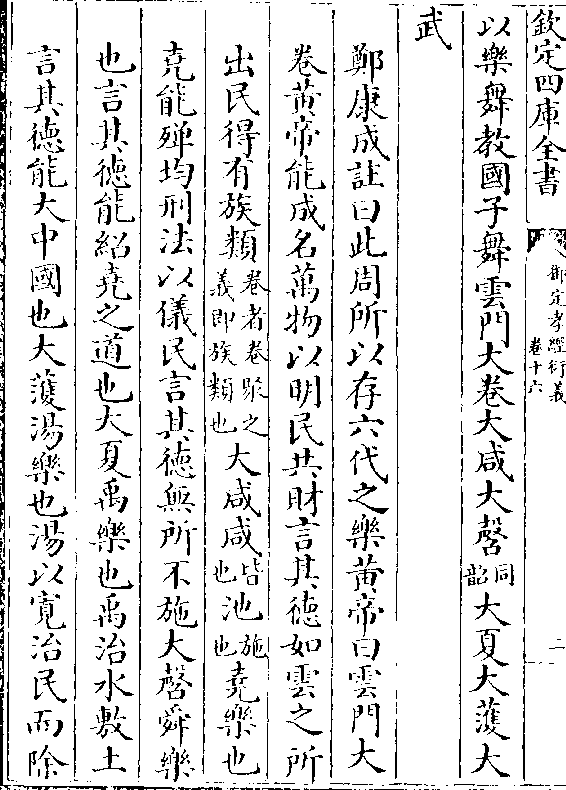 欽定四庫全書
御定孝經衍義
卷十六
二
以樂舞教國子舞雲門大卷大咸大㲈同韶大夏大濩大
武
鄭康成註曰此周所以存六代之樂黃帝曰雲門大
卷黃帝能成名萬物以明民共財言其德如雲之所
出民得有族類卷者卷聚之義即族類也大咸咸皆也池施也堯樂也
堯能殫均刑法以儀民言其德無所不施大㲈舜樂
也言其德能紹堯之道也大夏禹樂也禹治水敷土
言其德能大中國也大濩湯樂也湯以寬治民而除